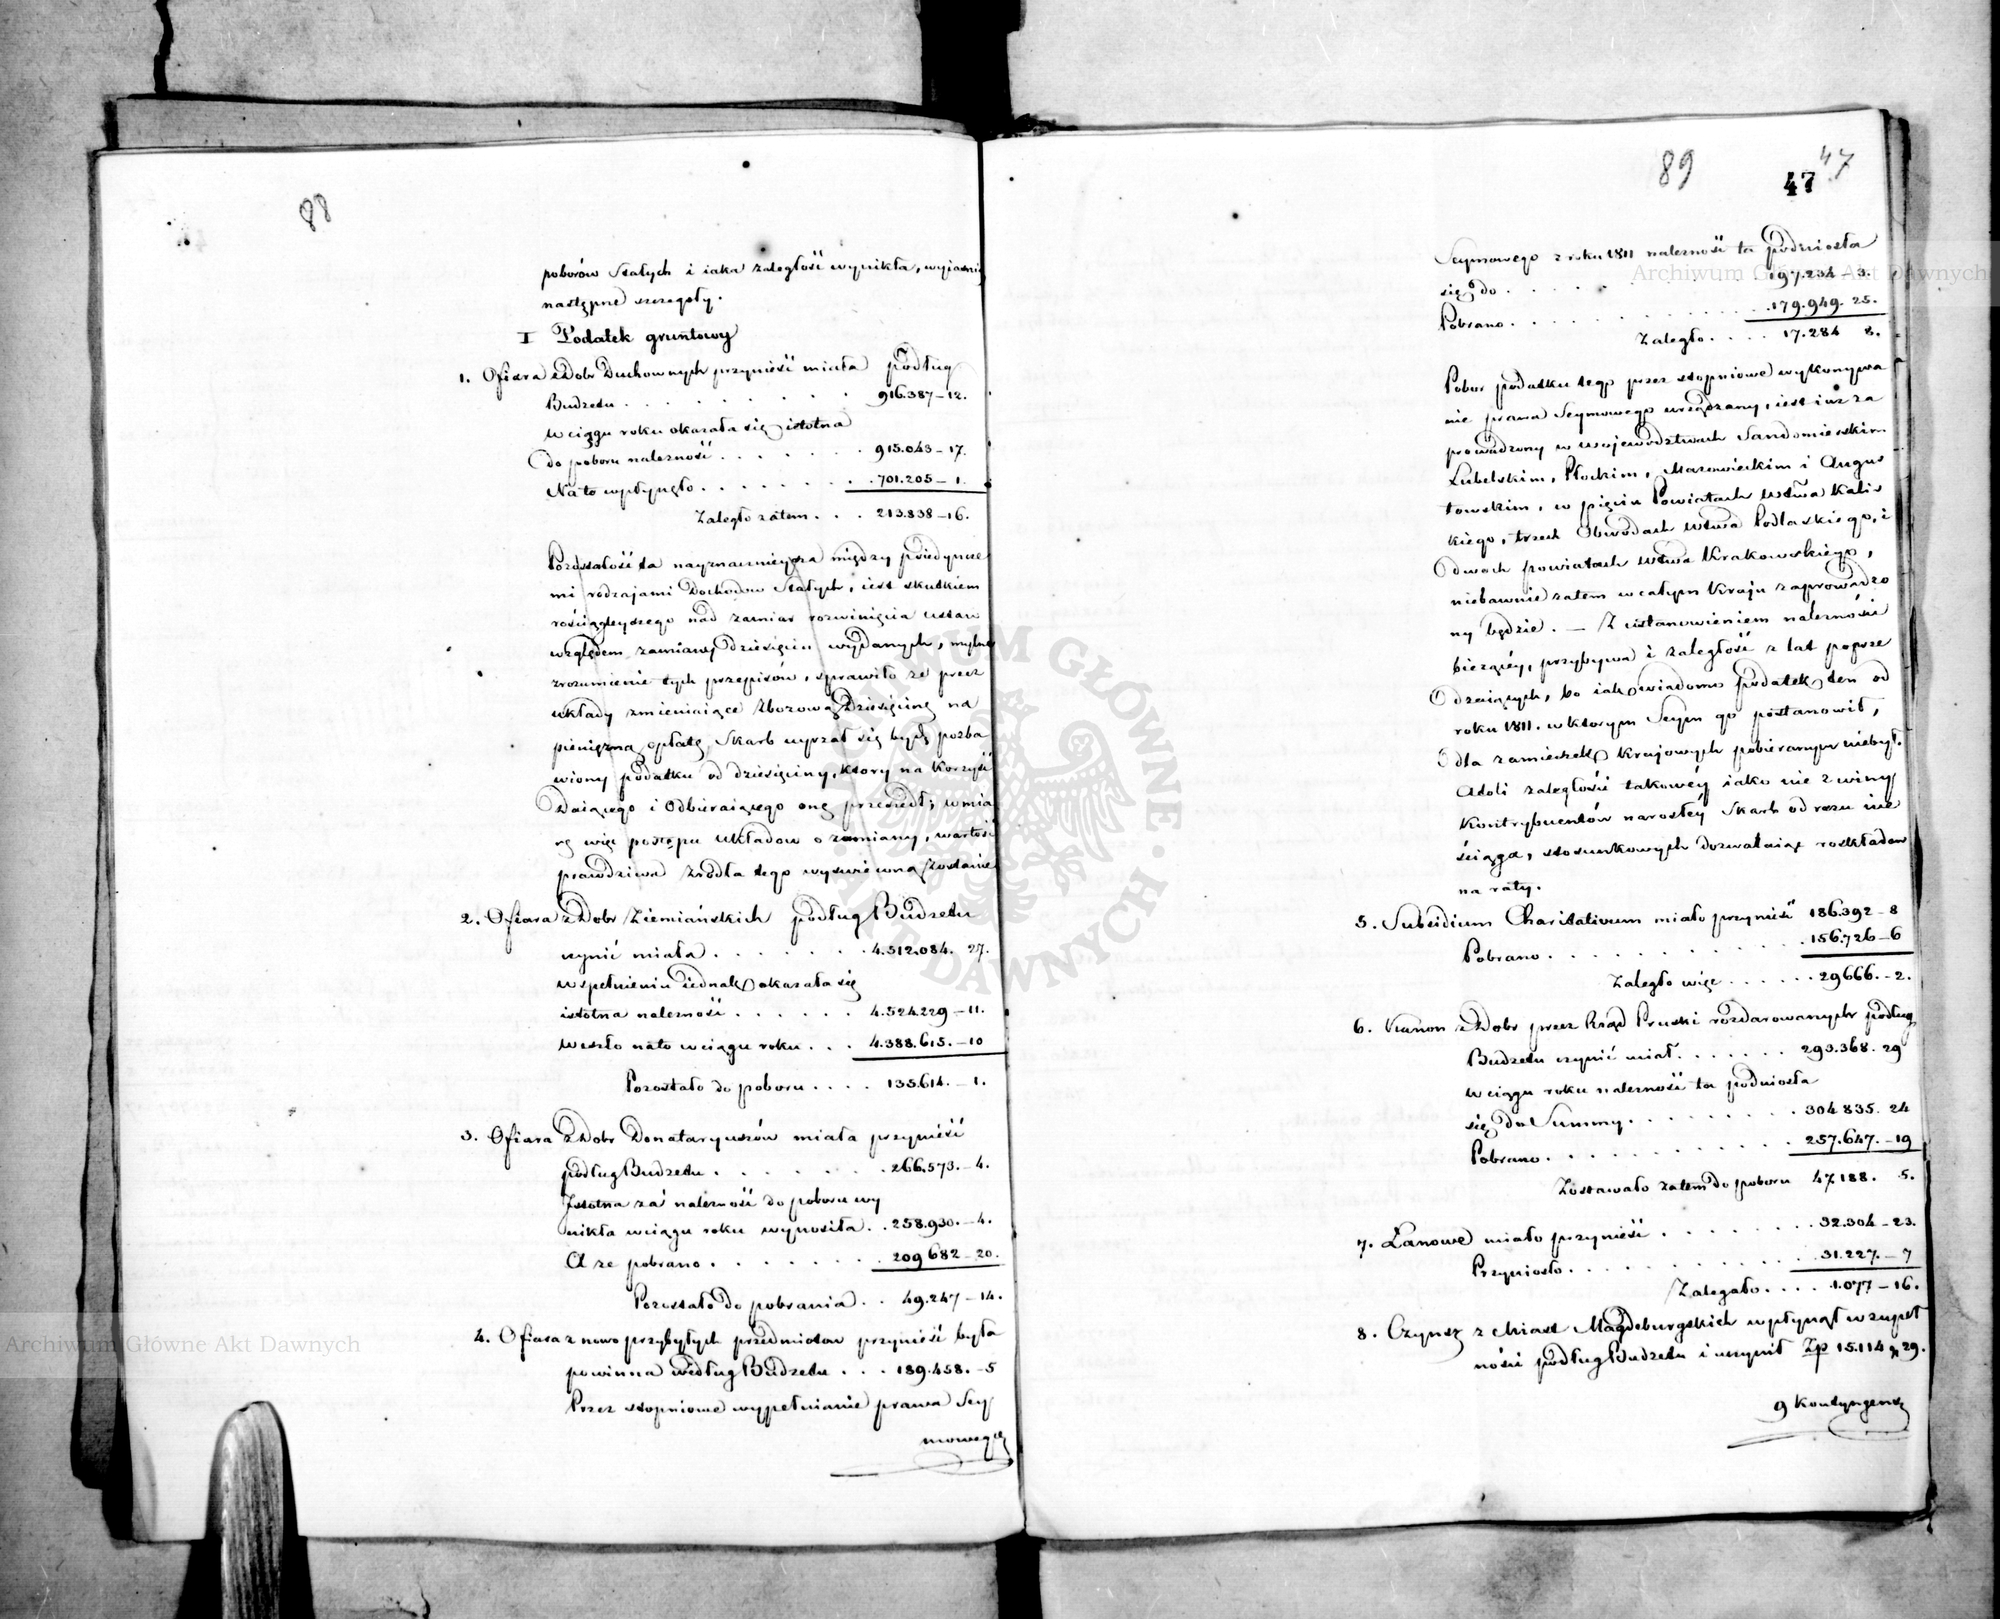 88
poborów Stałych i iaka zaległość wynikła, wyjaśnią
następne szczegóły.
I Podatek gruntowy
1. Ofiara z Dobr Duchownych przynieść miała podług
Budżetu . . . . . . . . . 916.387-12.
W ciągu roku okazała się istotna
do poboru należność . . . . . . . 915.043-17.
Na to wpłynęło . . . . . . . . 701.205-1.
Zaległo zatem . . . 213.838-16.
Pozostałość ta nayznacznieysza między poiedyncze
mi rodzajami Dochodów Stałych, iest skutkiem
rościągleyszego nad zamiar rozwinięcia ustaw
względem zamiany dziesięcin wydanych, mylne
zrozumienie tych przepisów, sprawiło że przez
układy zmieniaiące zbożową Dziesięcinę na
pieniężną opłatę, Skarb uyrzał się bydź pozba
wiony podatku od dziesięciny, ktory na korzyść
Daiącego i Odbieraiącego onę przeszedł; w mia
rę więc postępu układow o zamiany, wartość
prawdziwa źrodła tego wyświeconą zostanie
2. Ofiara z Dobr Ziemiańskich podług Budżetu
czynić miała . . . . . . . 4.512.084. 27.
W spełnieniu iednak okazała się
istotna należność . . . . . . 4.524.229-11.
Weszło na to w ciągu roku . . . 4.388.615.-10
Pozostało do poboru . . . . 135.614.-1.
3. Ofiara z Dobr Donataryuszów miała przynieść
podług Budżetu . . . . . . . 266.573.-4.
Istotna zaś należność do poboru wy
nikła w ciągu roku wynosiła . . 258.930.-4.
A że pobrano . . . . . . . . 209682-20.
Pozostało do pobrania . . 49.247-14.
4. Ofiara z nowo przybyłych przedmiotow przynieść była
powinna według Budżetu . . . 189.458.-5
Przez stopniowe wypełnianie prawa Sey
mowego
89
47
47
Seymowego z roku 1811 należność ta podniosła
się do . . . . . . . . 197.234-3.
Pobrano . . . . . . . . . . . 179.949. 25.
Zaległo . . . . 17.284 8.
Pobor podatku tego przez stopniowe wykonywa
nie prawa Seymowego urządzany, iest iuż za
prowadzony w Województwach Sandomierskim
Lubelskim, Płockim, Mazowieckim i Augus
towskim, w pięciu Powiatach Wdztwa Kalis
kiego, trzech Obwodach Wdztwa Podlaskiego, i
dwoch powiatach Wdztwa Krakowskiego,
niebawnie zatem w całym Kraju zaprowadzo
ny będzie. — Z ustanowieniem należności
bieżącéy, przybywa i zaległość z lat poprze
dzaiących, bo iak wiadomo podatek ten od
roku 1811. w ktorym Seym go postanowił,
dla zamieszek krajowych pobieranym niebył.
Atoli zaległości takowéy iako nie z winy
Kontrybuentów narosłéy Skarb od razu nie
ściąga, stosunkowych dozwalaiąc rozkładow
na raty.
5. Subsidium Charitativum miało przynieść 186.392-8
Pobrano . . . . . . . . . . 156.726-6
Zaległo więc . . . . . . 29666.-2.
6. Kanon z Dobr przez Rząd Pruski rozdarowanych podług
Budżetu czynić miał . . . . . . 293.368. 29
W ciągu roku należność ta podniosła
się do Summy . . . . . . . . 304 835. 24
Pobrano . . . . . . . . . . 257.647.-19
Zostawało zatem do poboru 47.188. 5.
7. Łanowe miało przynieść . . . . . . . 32.304-23.
Przyniosło . . . . . . . . . . . 31.227.-7
Zalegało . . . . 1.077-16.
8. Czynsz z Miast Magdeburgskich wpłynął w zupeł
ności podług Budżetu i uczynił Zp 15.114 gr 29.
9 Kontyngens
Archiwum Główne Akt Dawnych
Archiwum Główne Akt Dawnych
ARCHIWUM GŁÓWNE AKT DAWNYCH